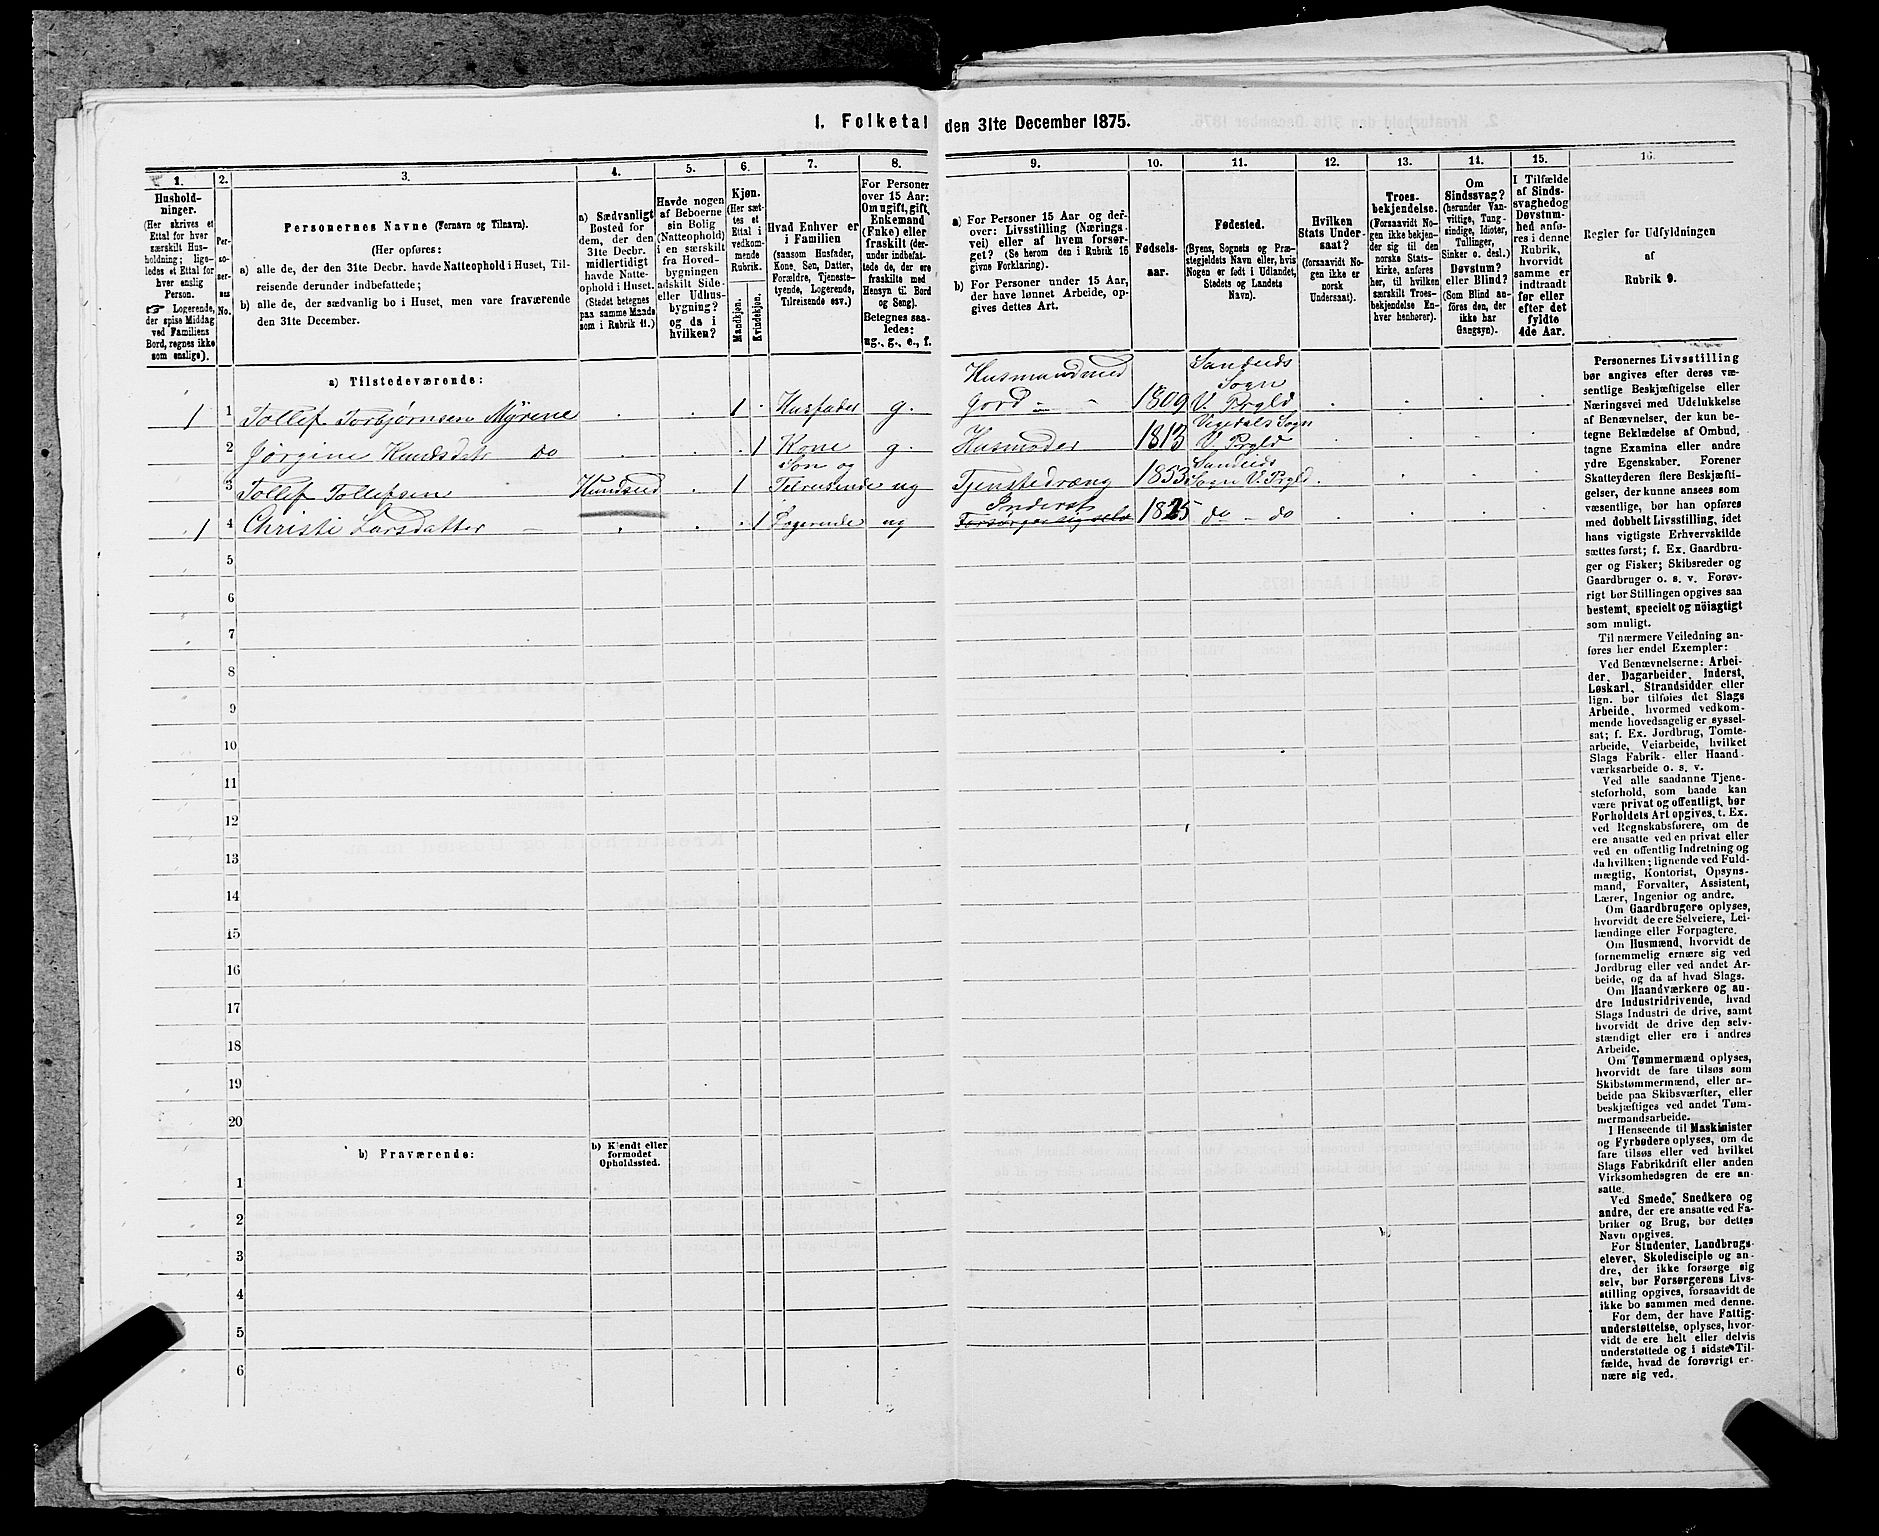 1. Folketal den 31te December 1875.
1.
Hushold-
ninger.
(Her skrives et
Ettal for hver
særskilt Hus-
holdning; lige-
ledes et Ettal for
hver enslig
Person.
☞ Logerende,
der spise Middag
ved Familiens
Bord, regnes ikke
som enslige).
2.
Per-
so-
ner-
nes
No.
3.
Personernes Navne (Fornavn og Tilnavn).
(Her opføres:
a) alle de, der den 31te Decbr. havde Natteophold i Huset, Til-
reisende derunder indbefattede;
b) alle de, der sædvanlig bo i Huset, men vare fraværende
den 31te December.
4.
a) Sædvanligt
Bosted for
dem, der den
31te Decbr.
midlertidigt
havde Natte-
ophold i Huset.
(Stedet betegnes
paa samme Maade
som i Rubrik 11.)
5.
Havde nogen
af Beboerne
sin Bolig
(Natteophold)
i en særskilt
fra Hoved-
bygningen
adskilt Side-
eller Udhus-
bygning?
og da i
hvilken?
6.
Kjøn.
(Her sæt-
tes et
Ettal i
vedkom-
mende
Rubrik.
Mandkjøn.
Kvindekjøn.
7.
Hvad Enhver er
i Familien
(saasom Husfader,
Kone, Søn, Datter,
Forældre, Tjeneste-
tyende, Logerende,
Tilreisende osv.)
8.
For Personer
over 15 Aar:
Om ugift, gift,
Enkemand
(Enke) eller
fraskilt (der-
under indbefat-
tede de, der ere
fraskilte med
Hensyn til Bord
og Seng).
Betegnes saa-
ledes:
ug., g., e., f.
9.
a) For Personer 15 Aar og der-
over: Livsstilling (Nærings-
vei) eller af hvem forsør-
get? (Se herom den i Rubrik 16
givne Forklaring).
b) For Personer under 15 Aar,
der have lønnet Arbeide, op-
gives dettes Art.
10.
Fødsels-
aar.
11.
Fødested.
(Byens, Sognets og Præ-
stegjeldets Navn eller, hvis
Nogen er født i Udlandet,
Stedets og Landets
Navn).
12.
Hvilken
Stats Under-
saat?
(forsaavidt No-
gen ikke er
norsk
Undersaat).
13.
Troes-
bekjendelse.
(Forsaavidt No-
gen ikke bekjen-
der sig til den
norske Stats-
kirke, anføres
her, til hvilken
særskilt Troes-
bekjendelse En-
hver henhører).
14.
Om
Sindssvag?
(herunder Van-
vittige, Tung-
sindige, Idioter,
Tullinger,
Sinker o. desl.)
Døvstum?
eller Blind?
(Som Blind an-
føres den, der
ikke har
Gangsyn).
15.
I Tilfælde
af Sinds-
svaghed og
Døvstum-
hed anfø-
res i denne
Rubrik,
hvorvidt
samme er
indtraadt
før eller
efter det
fyldte
4de Aar.
16.
Regler for Udfyldningen
af
Rubrik 9.
a) Tilstedeværende:
1 1 Tollef Torbjørnsen Myrene . . 1 . Husfader g. Husmand med Jord 1809 Sandeids Sogn V. Prgld . . . .
2 Jørgine Knudsdatr do . . . 1 Kone g. Husmoder 1813 Vigedals Sogn V. Prgld . . . .
3 Tollef Tollefsen Hundseid . 1 Søn og Tilreisende ug Tjenstedræng 1853 Sandeids Sogn V. Prgld . . . .
1 4 Christi Larsdatter . . . 1 Logerende ug Inderst Forsørger sig selv 1825 do - do . . . .
5
6
7
8
9
10
11
12
13
14
15
16
17
18
19
20
b) Fraværende:
b) Kjendt eller
formodet
Opholdssted.
1
2
3
4
5
6
Personernes Livsstilling
bør angives efter deres væ-
sentlige Beskjæftigelse eller
Næringsvei med Udelukkelse
af Benævnelser, der kun be-
tegne Beklædelse af Ombud,
tagne Examina eller andre
ydre Egenskaber. Forener
Skatteyderen flere Beskjæfti-
gelser, der kunne ansees som
væsentlige, bør han opføres
med dobbelt Livsstilling, idet
hans vigtigste Erhvervskilde
sættes først; f. Ex. Gaardbru-
ger og Fisker; Skibsreder og
Gaardbruger o. s. v. Forøv-
rigt bør Stillingen opgives saa
bestemt, specielt og nöiagtigt
som muligt.
Til nærmere Veiledning an-
føres her endel Exempler:
Ved Benævnelserne: Arbei-
der, Dagarbeider, Inderst,
Løskarl, Strandsidder eller
lign. bør tilføies det Slags
Arbeide, hvormed vedkom-
mende hovedsagelig er syssel-
sat; f. Ex. Jordbrug, Tomte-
arbeide, Veiarbeide, hvilket
Slags Fabrik- eller Haand-
værksarbeide o. s. v.
Ved alle saadanne Tjene-
steforhold, som baade kan
være privat og offentligt, bør
Forholdets Art opgives, t. Ex.
ved Regnskabsførere, om de
ere ansatte ved en privat eller
ved en offentlig Indretning og
da hvilken; lignende ved Fuld-
mægtig, Kontorist, Opsyns-
mand, Forvalter, Assistent,
Lærer, Ingeniør og andre.
Om Gaardbrugere oplyses,
hvorvidt de ere Selveiere, Lei-
lændinge eller Forpagtere.
Om Husmænd, hvorvidt de
fornemmelig ernære sig ved
Jordbrug eller ved andet Ar-
beide, og da af hvad Slags.
Om Haandværkere og an-
dre Industridrivende, hvad
Slags Industri de drive, samt
hvorvidt de drive den selv-
stændigt eller ere i andres
Arbeide.
Om Tømmermænd oplyses,
hvorvidt de fare tilsøs som
Skibstømmermænd, eller ar-
beide paa Skibsværfter, eller
beskjæftiges ved andet Tøm-
mermandsarbeide.
I Henseende til Maskinister
og Fyrbødere oplyses, om de
fare tilsøs eller ved hvilket
Slags Fabrikdrift eller anden
Virksomhedsgren de ere an-
satte.
Ved Smede, Snedkere og
andre, der ere ansatte ved Fa-
briker og Brug, bør dettes
Navn opgives.
For Studenter, Landbrugs-
elever, Skoledisciple og an-
dre, der ikke forsørge sig
selv, bør Forsørgerens Livs-
stilling opgives, forsaavidt de
ikke bo sammen med denne.
For dem, der have Fattig-
understøttelse, oplyses, hvor-
vidt de ere helt eller delvis
understøttede og i sidste Til-
fælde, hvad de forøvrigt er-
nære sig ved.